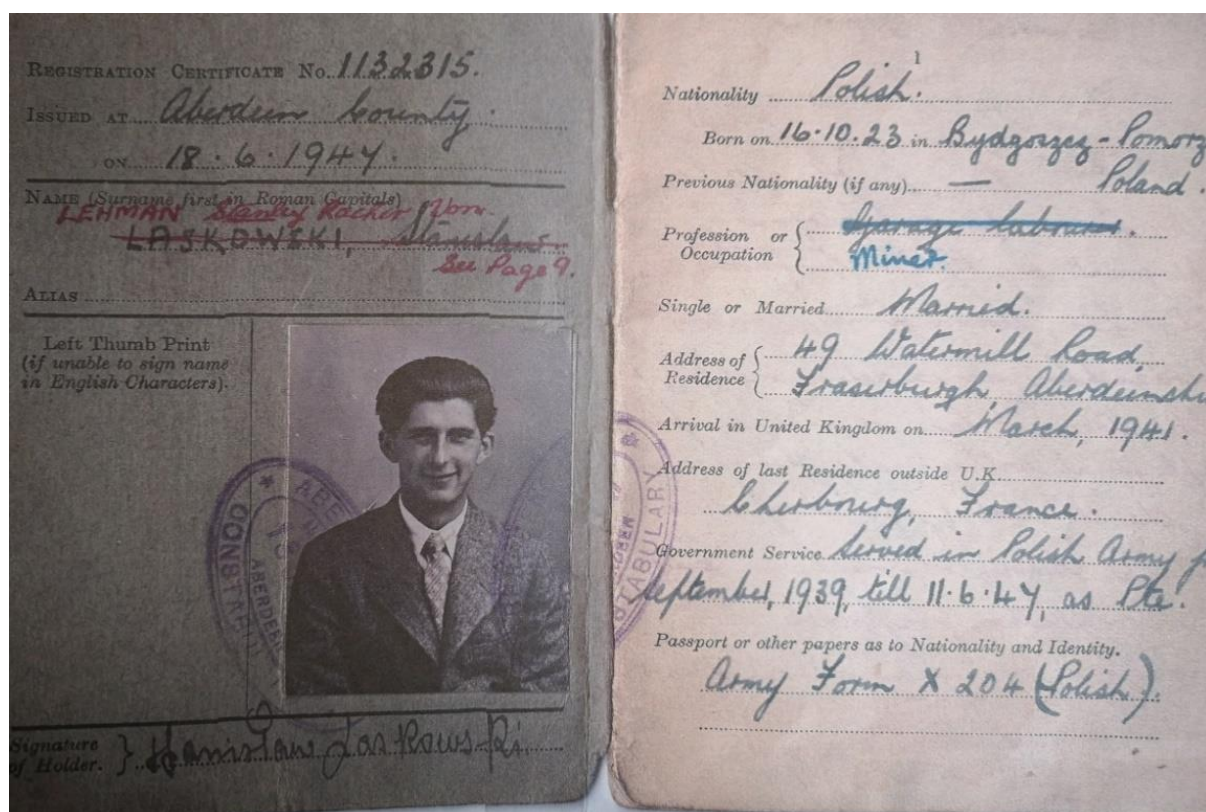 REGISTRATION CERTIFICATE No. 1132315.
ISSUED AT Aberdeen County.
ON 18.6.1947.
NAME (Surname first in Roman Capitals)
LEHMAN Stanley
LASKOWSKI, Stanislaw
See Page 9.
ALIAS
Left Thumb Print
(if unable to sign name
in English Characters).
Signature
of Holder. } Stanislaw Laskowski
1
Nationality Polish.
Born on 16.10.23 in Bydgoszcz - Pomorz
Previous Nationality (if any) — Poland.
Profession or
Occupation { Garage labourer.
Miner.
Single or Married Married.
Address of
Residence { 49 Watermill Road,
Fraserburgh, Aberdeenshi
Arrival in United Kingdom on March, 1941.
Address of last Residence outside U.K.
Cherbourg, France.
Government Service Served in Polish Army f
September, 1939, till 11.6.47, as Pte.
Passport or other papers as to Nationality and Identity.
Army Form X 204 (Polish).
CONSTABU
ABERDEEN
TABULARY